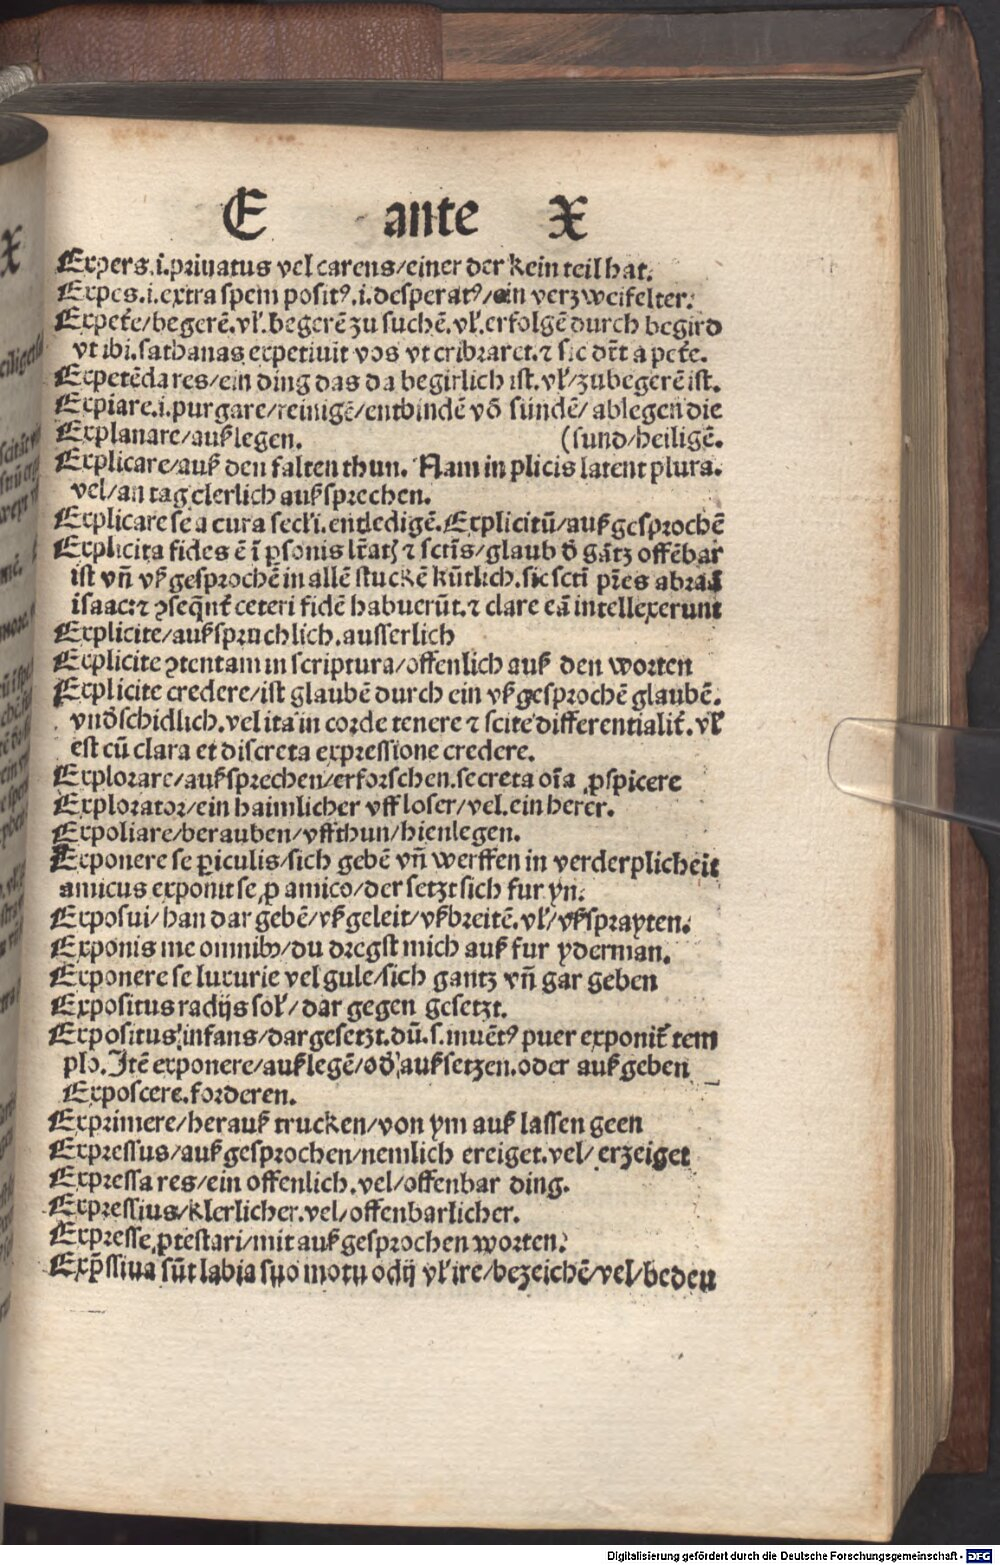 E ante X
Expers.i.priuatus vel carens/einer der kein teil hat.
Expes.i.extra spem positꝰ.i.desperatꝰ/ein verzweifelter.
Expet̃e/begerẽ.vl̃.begerẽ zu suchẽ.vl̃.erfolgẽ durch begird
vt ibi.sathanas expetiuit vos vt cribraret.⁊ sic dr̃t a pet̃e.
Expetẽda res/ein ding das da begirlich ist.vl̃/zubegerẽ ist.
Expiare.i.purgare/reinigẽ/entbindẽ võ sundẽ/ablegen die
Explanare/außlegen. (sund/heiligẽ.
Explicare/auß den falten thun. Nam in plicis latent plura.
vel/an tag clerlich außsprechen.
Explicare se a cura secl̃i.entledigẽ.Explicitũ/außgesprochẽ
Explicita fides ẽ ĩ ꝑsonis lr̃atꝭ ⁊ sctĩs/glaub ð gãtz offẽbar
ist vñ vßgesprochẽ in allẽ stuckẽ kũtlich.sic scti pr̃es abraã
isaac:⁊ ꝯseq̃nt̃ ceteri fidẽ habuerũt.⁊ clare eã intellexerunt
Explicite/außspruchlich.ausserlich
Explicite ꝯtentam in scriptura/offenlich auß den worten
Explicite credere/ist glaubẽ durch ein vßgesprochẽ glaubẽ.
vnðschidlich.vel ita in corde tenere ⁊ scite differentialit̃.vl̃
est cũ clara et discreta expressione credere.
Explorare/außsprechen/erforschen.secreta oĩa ꝓspicere
Explorator/ein haimlicher vffloser/vel.ein herer.
Expoliare/berauben/vffthun/hienlegen.
Exponere se ꝑiculis/sich gebẽ vñ werffen in verderplicheit
amicus exponit se ꝓ amico/der setzt sich fur yn.
Exposui/han dar gebẽ/vßgeleit/vßbreitẽ.vl̃/vßsprayten.
Exponis me omnibꝫ/du dregst mich auß fur yderman.
Exponere se luxurie vel gule/sich gantz vñ gar geben
Expositus radijs sol̃/dar gegen gesetzt.
Expositus infans/dargesetzt.dũ.s.inuẽtꝰ puer exponit̃ tem
plo.Itẽ exponere/außlegẽ/oð außsetzen.oder außgeben
Exposcere.forderen.
Exprimere/herauß trucken/von ym auß lassen geen
Expressus/außgesprochen/nemlich ereiget.vel/erzeiget
Expressa res/ein offenlich.vel/offenbar ding.
Expressius/klerlicher.vel/offenbarlicher.
Expresse ꝓtestari/mit außgesprochen worten.
Exp̃ssiua sũt labia suo motu odij vl̃ ire/bezeichẽ/vel/bedeu
Digitalisierung gefördert durch die Deutsche Forschungsgemeinschaft - DFG